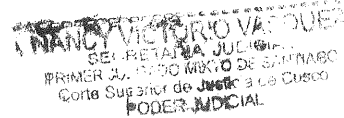 NANCY VICTORIO VASQUEZ
SECRETARIA JUDICIAL
PRIMER JUZGADO MIXTO DE SANTIAGO
Corte Superior de Justicia de Cusco
PODER JUDICIAL